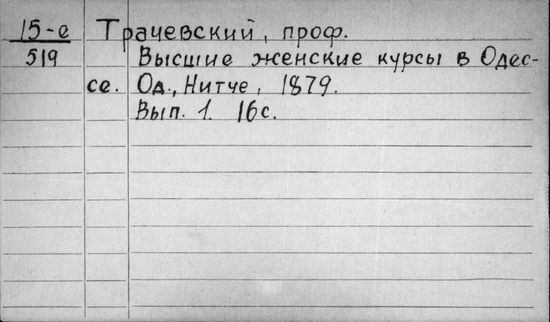 15-е Трачевский, проф.
519 Высшие женские курсы в Одес-
се. Од., Нитче, 1879.
Вып. 1. 16с.